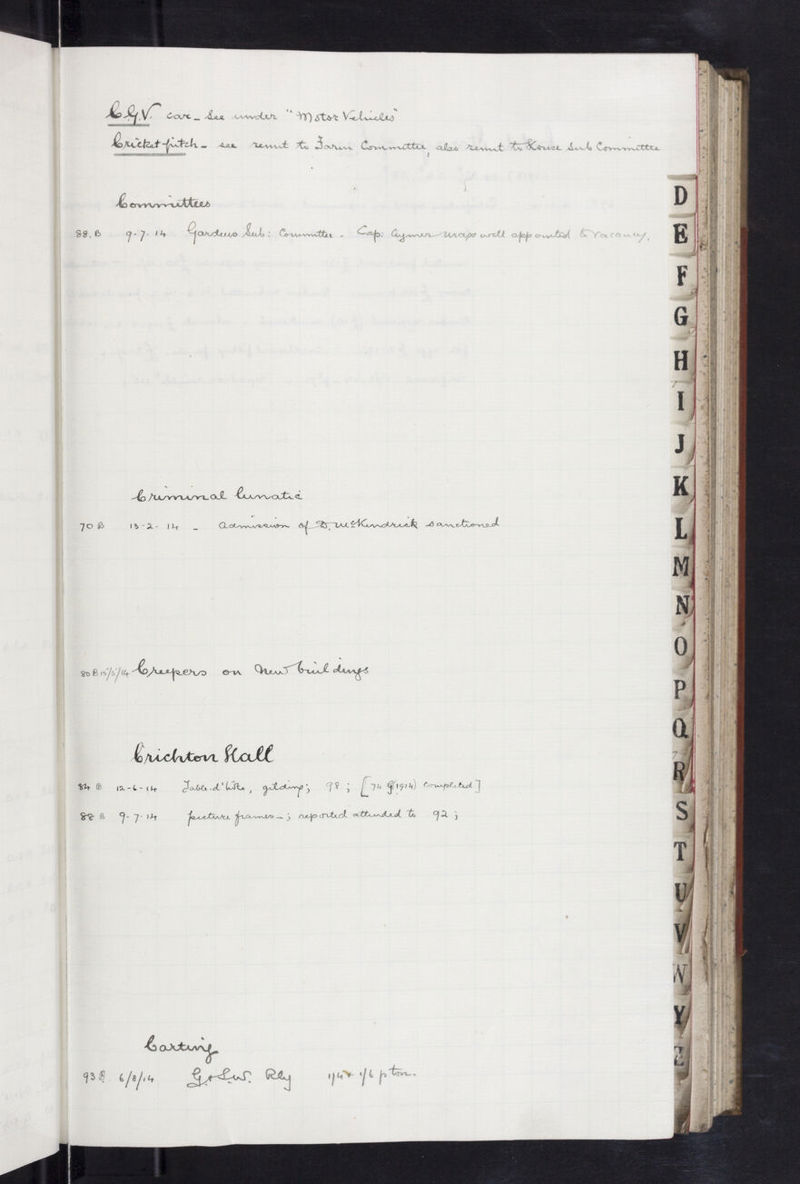 C.G.V. car - See under "Motor Vehicles"
Cricket pitch - see remit to Farm Committee, also remit to House Sub Committee
Committees
88. B 9-7-14 Gardens Sub: Committee - Cap: Aymer Maxwell appointed to vacancy.
Criminal lunatic
70 B 13-2-14 - Admission of D. McKendrick sanctioned
80 B 15/5/14 Creepers on New buildings
Crichton Hall
84 B 12-6-14 Table d'hôte, gilding; 98; [74 (1914) completed]
88 B 9-7-14 picture frames -; reported attended to 92;
Carting
93 B 6/8/14 G & S.W. Rly 1/4 & 1/6 p ton.
D
E
F
G
H
I
J
K
L
M
N
O
P
Q
R
S
T
U
V
W
Y
Z